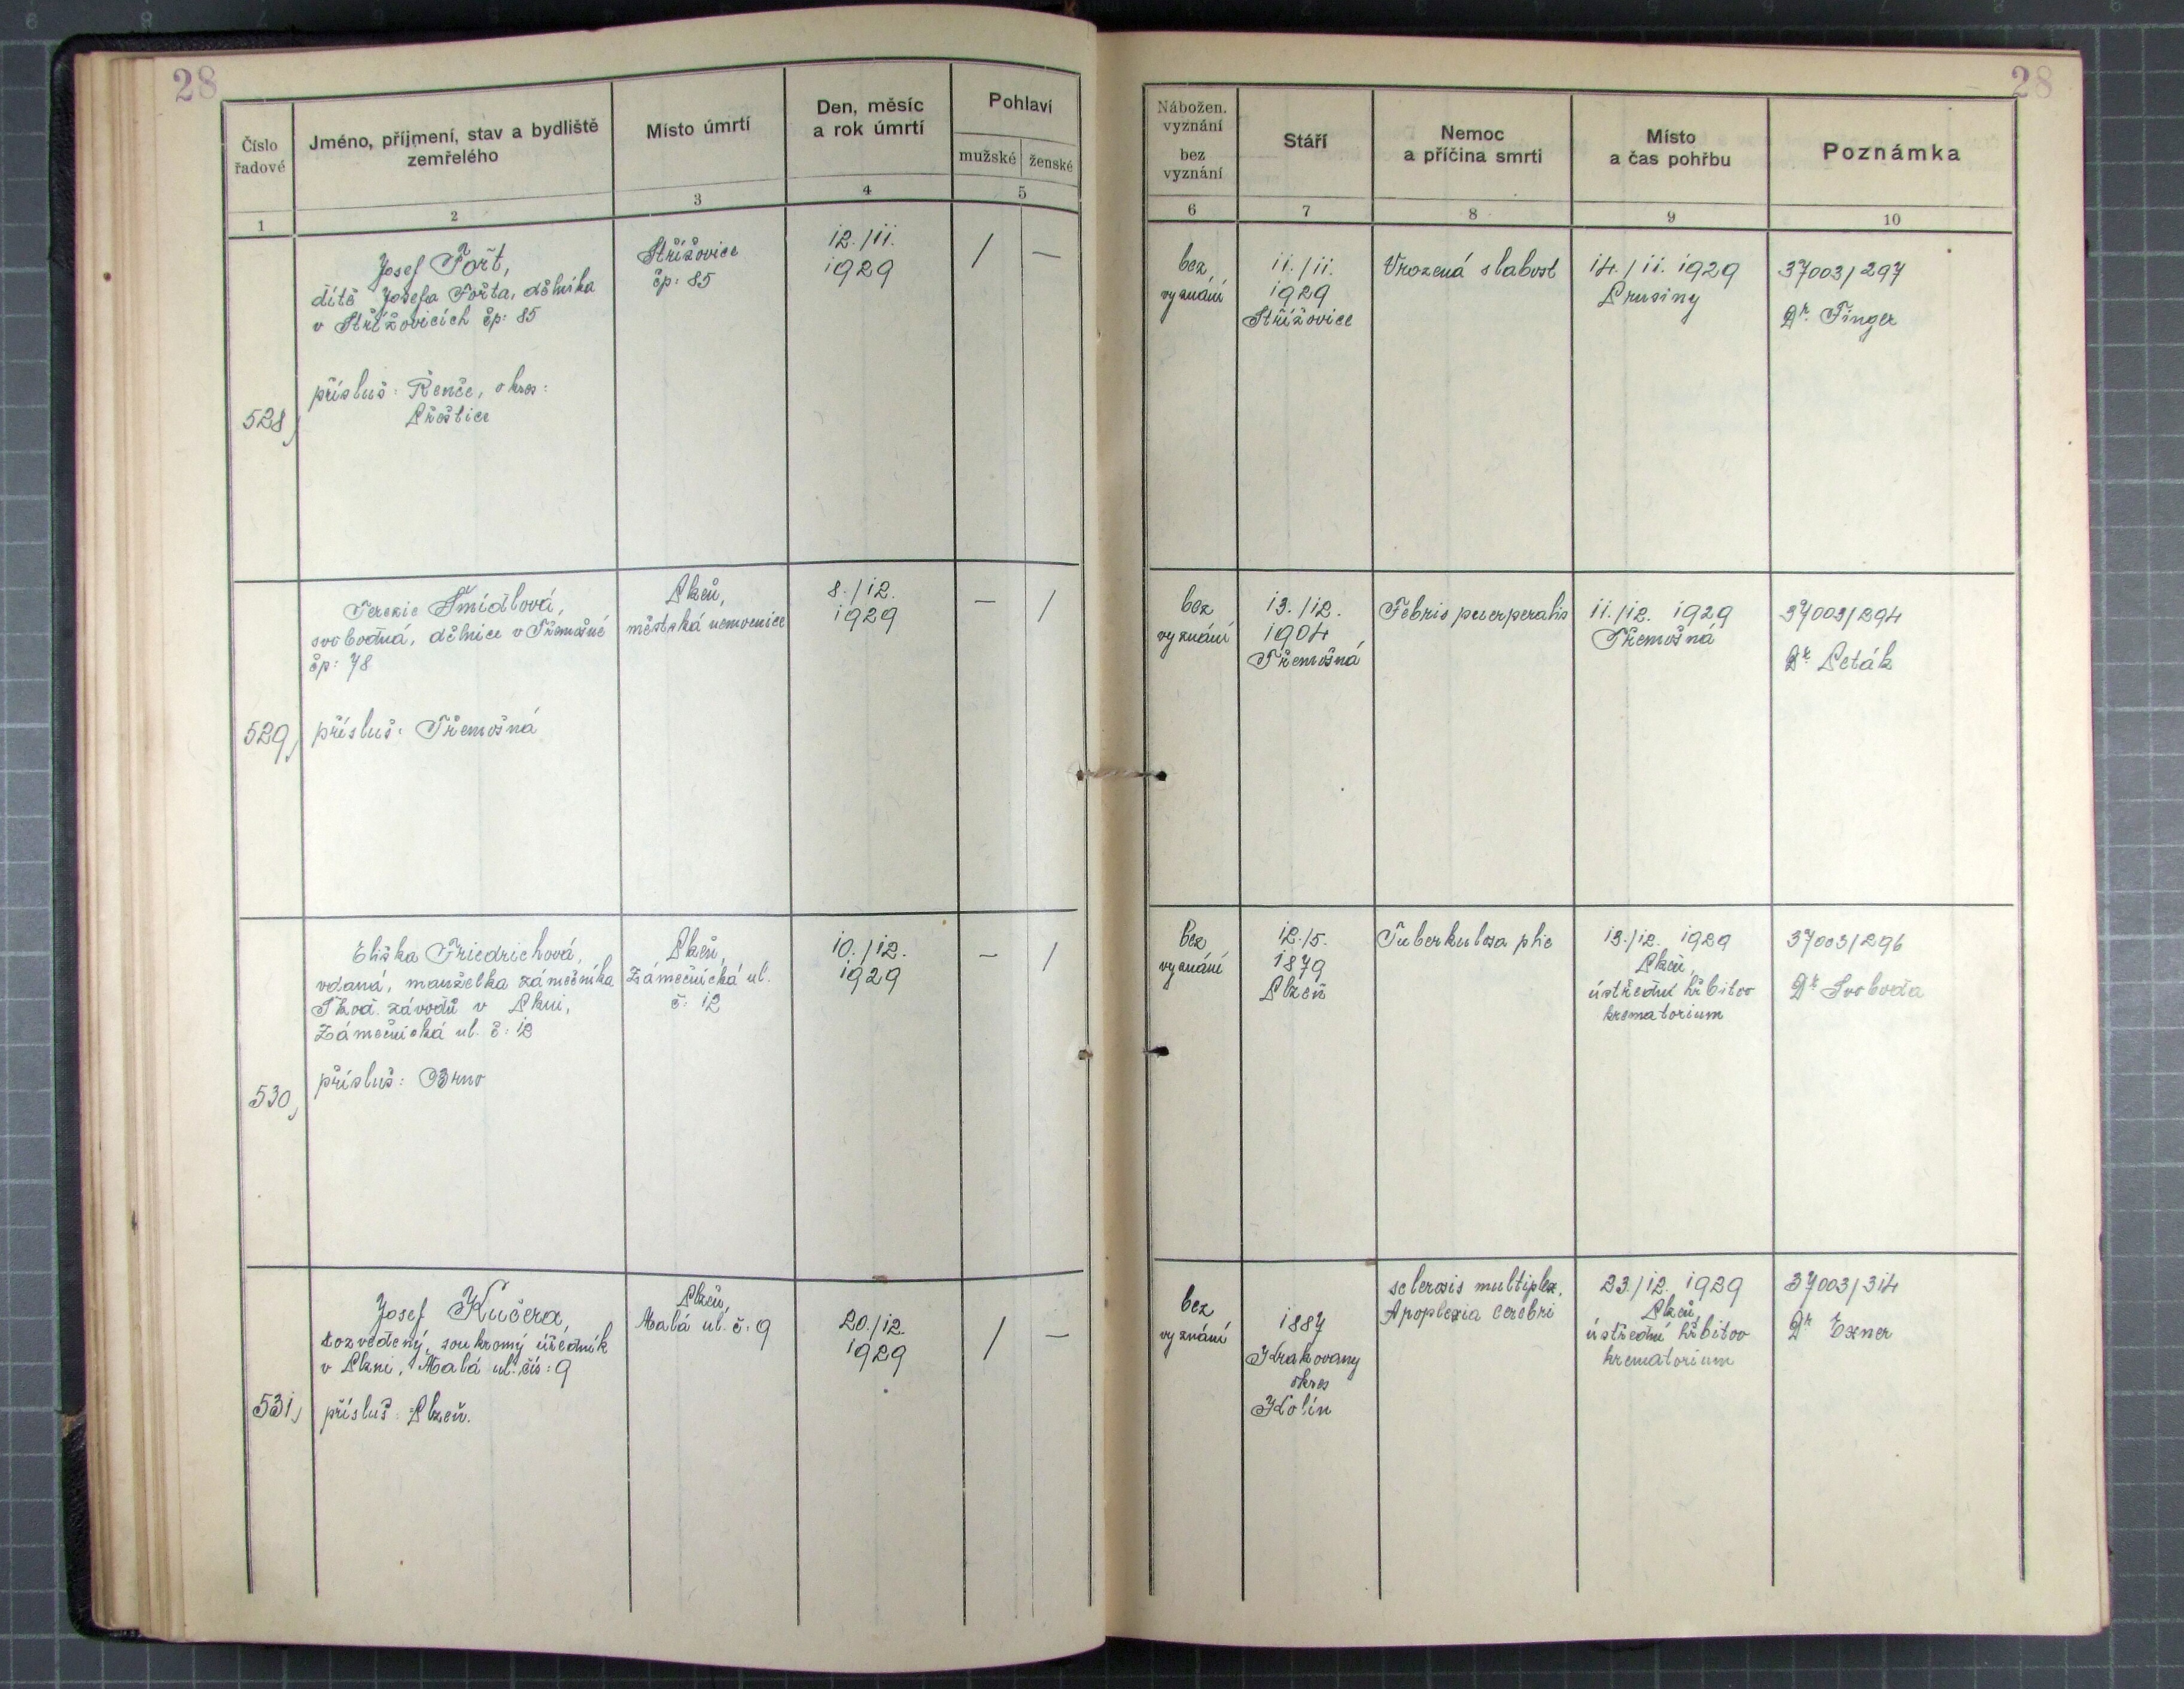 28
28
Číslo
řadové
Jméno, příjmení, stav a bydliště
zemřelého
Místo úmrtí
Den, měsíc
a rok úmrtí
Pohlaví
mužské
ženské
Nábožen.
vyznání
bez
vyznání
Stáří
Nemoc
a příčina smrti
Místo
a čas pohřbu
Poznámka
1
2
3
4
5
6
7
8
9
10
528)
Josef Fořt,
dítě Josefa Fořta, dělníka
v Střížovicích čp: 85
přísluš: Řenče, okres:
Přeštice
Střížovice
čp: 85
12./11.
1929
/
—
bez
vyznání
11./11.
1929
Střížovice
Vrozená slabost
14./11. 1929
Prusiny
37003/297
Dr. Finger
529)
Terezie Šmídlová,
svobodná, dělnice v Třemošné
čp: 78
přísluš: Třemošná
Plzeň,
městská nemocnice
8./12.
1929
—
/
bez
vyznání
13./12.
1904
Třemošná
Febris puerperalis
11./12. 1929
Třemošná
37003/294
Dr. Peták
530)
Eliška Friedrichová,
vdaná, manželka zámečníka
Škod. závodů v Plzni,
Zámečnická ul. č: 12
přísluš: Brno
Plzeň,
Zámečnická ul.
č: 12
10./12.
1929
—
/
bez
vyznání
12./5.
1879
Plzeň
Tuberkulosa plic
13./12. 1929
Plzeň,
ústřední hřbitov
krematorium
37003/296
Dr. Svoboda
531)
Josef Kučera,
rozvedený, soukromý úředník
v Plzni, Malá ul. čís: 9
přísluš: Plzeň.
Plzeň,
Malá ul. č: 9
20./12.
1929
/
—
bez
vyznání
1887
Krakovany
okres
Kolín
sclerosis multiplex.
Apoplexia cerebri
23./12. 1929
Plzeň,
ústřední hřbitov
krematorium
37003/314
Dr. Exner